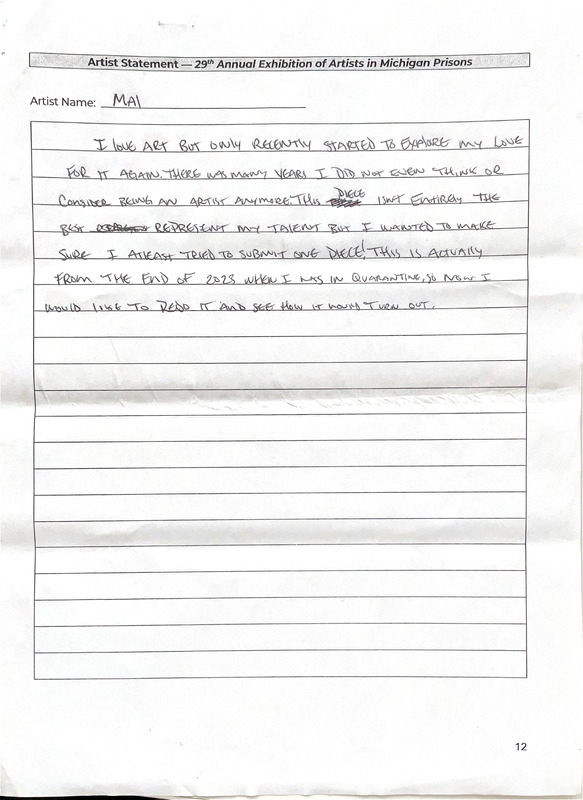 Artist Statement — 29th Annual Exhibition of Artists in Michigan Prisons
Artist Name: MAI
I LOVE ART BUT ONLY RECENTLY STARTED TO EXPLORE MY LOVE
FOR IT AGAIN. THERE WAS MANY YEARS I DID NOT EVEN THINK OR
CONSIDER BEING AN ARTIST ANYMORE. THIS PIECE ISNT ENTIRELY THE
BEST REPRESENT MY TALENT BUT I WANTED TO MAKE
SURE I ATLEAST TRIED TO SUBMIT ONE PIECE! THIS IS ACTUALLY
FROM THE END OF 2023 WHEN I WAS IN QUARANTINE, SO NOW I
WOULD LIKE TO REDO IT AND SEE HOW IT WOULD TURN OUT.
12